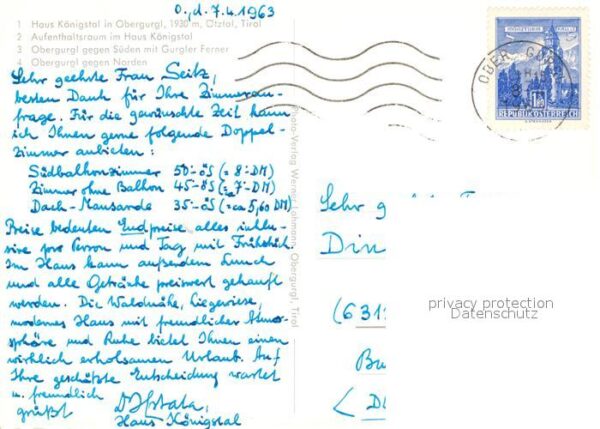 O., d. 7.4.1963
1 Haus Königstal in Obergurgl, 1930 m, Ötztal, Tirol
2 Aufenthaltsraum im Haus Königstal
3 Obergurgl gegen Süden mit Gurgler Ferner
4 Obergurgl gegen Norden
Sehr geehrte Frau Seitz,
besten Dank für Ihre Zimmeran-
frage. Für die gewünschte Zeit kann
ich Ihnen gerne folgende Doppel-
zimmer anbieten:
Südbalkonzimmer 50-öS (= 8-DM)
Zimmer ohne Balkon 45-öS (= 7-DM)
Dach-Mansarde 35-öS (= ca 5,60 DM)
Preise bedeuten Endpreise alles inklu-
sive pro Person und Tag mit Frühstück.
Im Haus kann außerdem Lunch
und alle Getränke preiswert gekauft
werden. Die Waldnähe, Liegewiese,
modernes Haus mit freundlicher Atmos-
phäre und Ruhe bietet Ihnen einen
wirklich erholsamen Urlaub. Auf
Ihre geschätzte Entscheidung wartet
u. freundlich
grüßt
Haus Königstal
Obergurgl, Tirol
REPUBLIK ÖSTERREICH
Sehr
Din
(631
<
privacy protection
Datenschutz